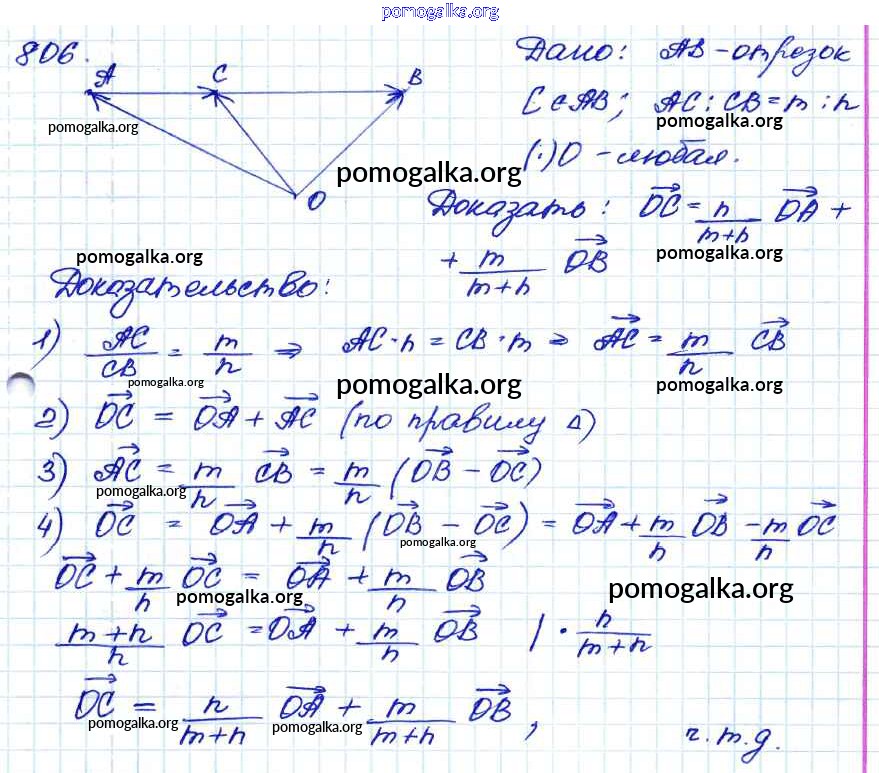 pomogalka.org
806.
Дано: AB – отрезок
A C B
C ∈ AB; AC : CB = m : n
pomogalka.org pomogalka.org
(·) O – любая.
pomogalka.org
O
Доказать: OC⃗ = n/(m+n) OA⃗ +
pomogalka.org pomogalka.org
+ m/(m+n) OB⃗
Доказательство:
1) AC/CB = m/n ⇒ AC · n = CB · m ⇒ AC⃗ = m/n CB⃗
pomogalka.org pomogalka.org pomogalka.org
2) OC⃗ = OA⃗ + AC⃗ (по правилу Δ)
3) AC⃗ = m/n CB⃗ = m/n (OB⃗ – OC⃗)
pomogalka.org
4) OC⃗ = OA⃗ + m/n (OB⃗ – OC⃗) = OA⃗ + m/n OB⃗ – m/n OC⃗
pomogalka.org
OC⃗ + m/n OC⃗ = OA⃗ + m/n OB⃗
pomogalka.org pomogalka.org
(m+n)/n OC⃗ = OA⃗ + m/n OB⃗ | · n/(m+n)
OC⃗ = n/(m+n) OA⃗ + m/(m+n) OB⃗,
pomogalka.org pomogalka.org
ч.т.д.